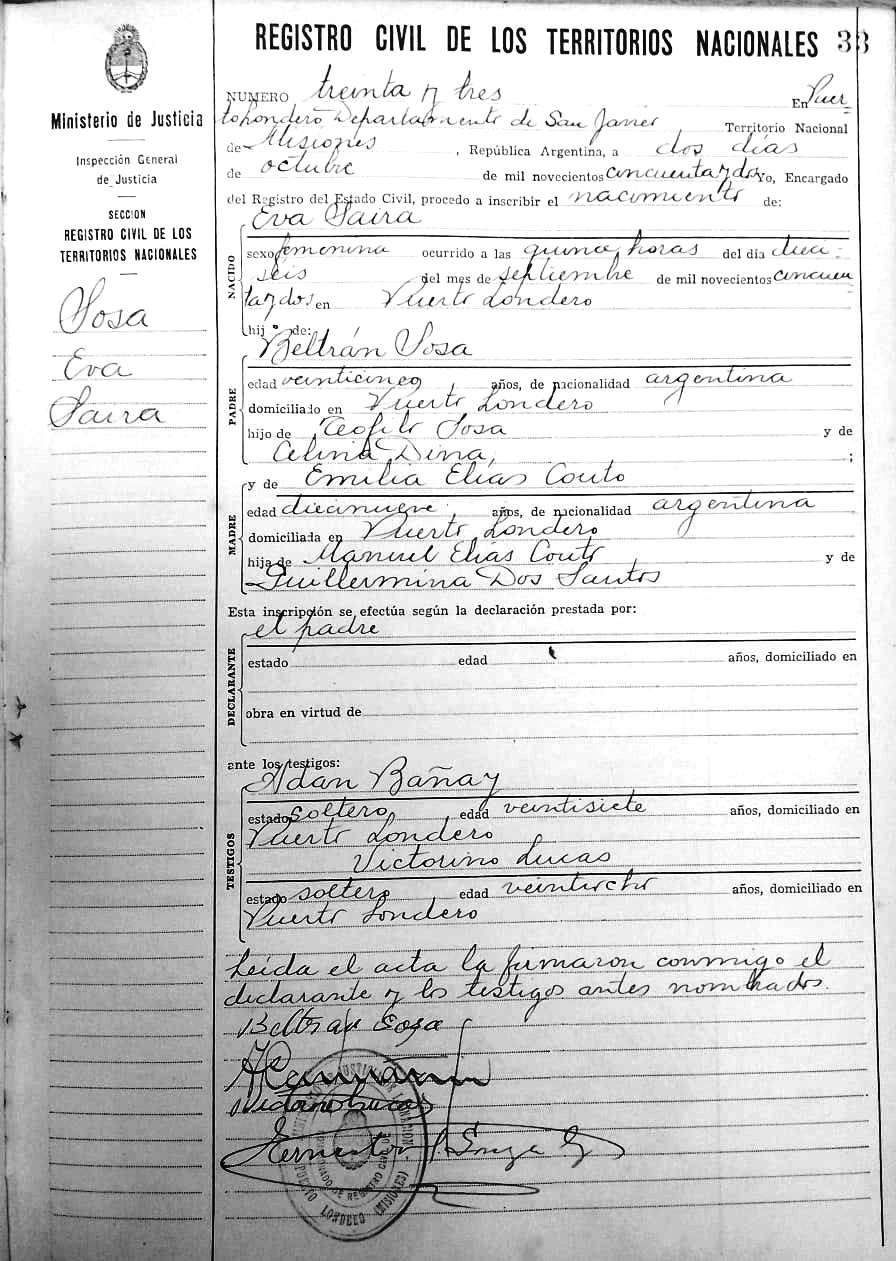 REGISTRO CIVIL DE LOS TERRITORIOS NACIONALES 33
Ministerio de Justicia
Inspección General
de Justicia
SECCION
REGISTRO CIVIL DE LOS
TERRITORIOS NACIONALES
Sosa
Eva
Saira
NUMERO treinta y tres En Puer
to Londero Departamento de San Javier Territorio Nacional
de Misiones, República Argentina, a dos días
de octubre de mil novecientos cincuenta y dos Yo, Encargado
del Registro del Estado Civil, procedo a inscribir el nacimiento de:
Eva Saira
NACIDO
sexo femenina ocurrido a las quince horas del día diez
seis del mes de septiembre de mil novecientos cincuen
ta y dos en Puerto Londero
hij o de:
Beltrán Sosa
PADRE
edad veinticinco, años, de nacionalidad argentina
domiciliado en Puerto Londero
hijo de Teofilo Sosa y de
Celina Dina, ;
y de Emilia Elías Couto
MADRE
edad diecinueve, años, de nacionalidad argentina
domiciliada en Puerto Londero
hija de Manuel Elías Couto y de
Guillermina Dos Santos
Esta inscripción se efectúa según la declaración prestada por:
el padre
DECLARANTE
estado edad años, domiciliado en
obra en virtud de
ante los testigos:
Adan Bañay
TESTIGOS
estado soltero, edad veintisiete años, domiciliado en
Puerto Londero
Victorino Lucas
estado soltero, edad veintiocho años, domiciliado en
Puerto Londero
Leída el acta la firmaron conmigo el
declarante y los testigos antes nombrados.
Beltran Sosa
Victorino Lucas
PUERTO LONDERO (MISIONES)